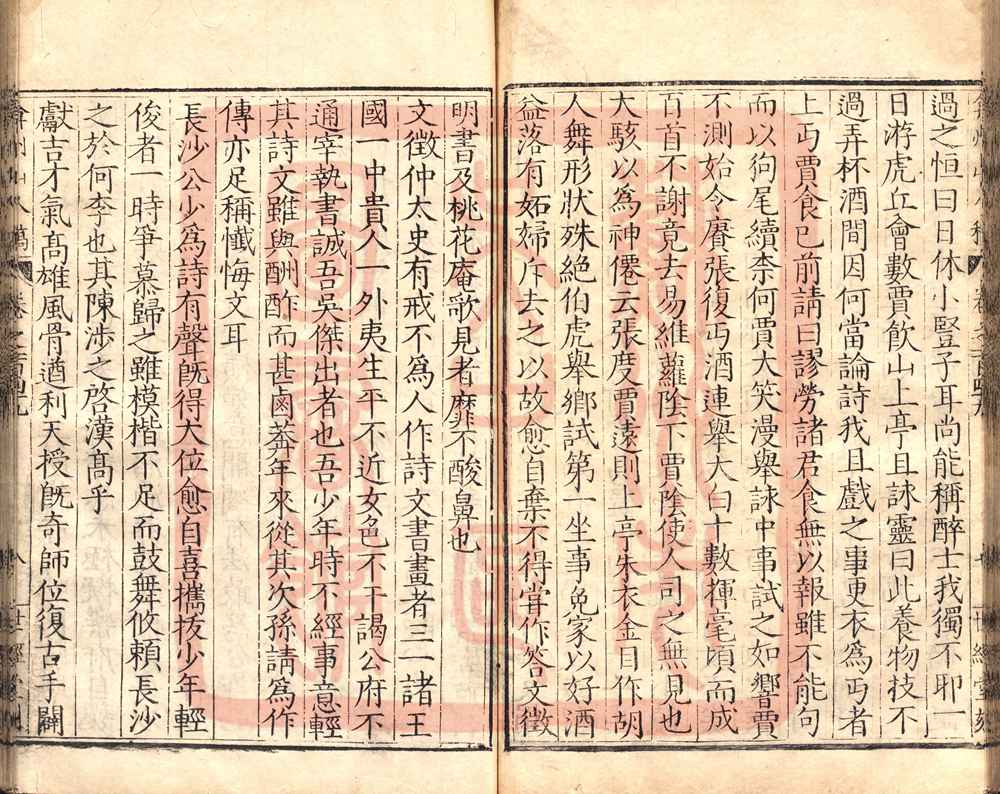 過之恒曰日休小豎子耳尚能稱醉士我獨不耶一
日游虎丘會數賈飲山上亭且詠靈曰此養物技不
過弄杯酒間因何當論詩我且戲之事更衣爲丐者
上丐賈食已前請曰謬勞諸君食無以報雖不能句
而以狗尾續柰何賈大笑漫舉詠中事試之如響賈
不測始令賡張復丐酒連舉大白十數揮毫頃而成
百首不謝竟去易維蘿陰下賈陰使人司之無見也
大駭以爲神僊云張度賈遠則上亭朱衣金目作胡
人舞形狀殊絶伯虎舉鄉試第一坐事免家以好酒
益落有妬婦斥去之以故愈自棄不得嘗作答文徵
明書及桃花庵歌見者靡不酸鼻也
文徵仲太史有戒不爲人作詩文書畫者三一諸王
國一中貴人一外夷生平不近女色不干謁公府不
通宰執書誠吾吳傑出者也吾少年時不經事意輕
其詩文雖與酬酢而甚鹵莽年來從其次孫請爲作
傳亦足稱懺悔文耳
長沙公少爲詩有聲旣得大位愈自喜攜拔少年輕
俊者一時爭慕歸之雖模楷不足而鼓舞攸賴長沙
之於何李也其陳涉之啓漢髙乎
獻吉才氣髙雄風骨遒利天授旣奇師位復古手闢